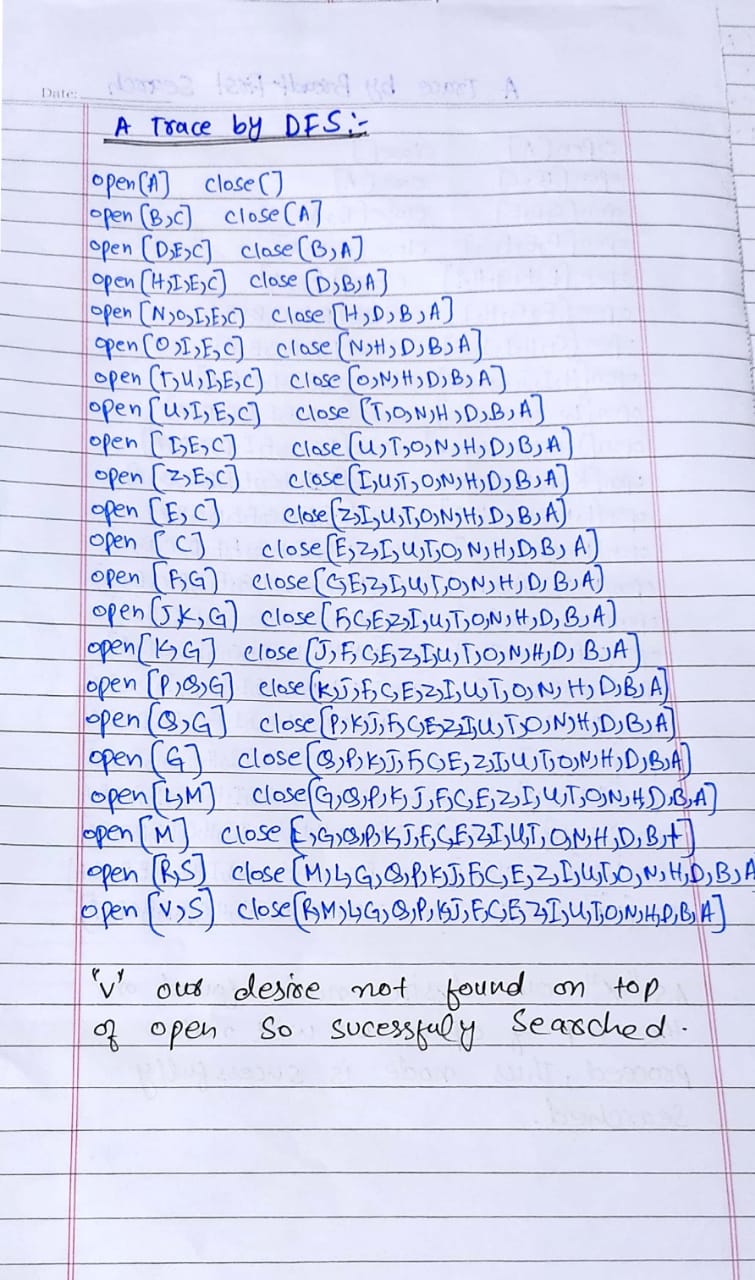 Date:
A Trace by DFS:-
open[A] close[]
open [B,C] close[A]
open [D,E,C] close[B,A]
open [H,I,E,C] close [D,B,A]
open [N,O,I,E,C] close [H,D,B,A]
open [O,I,E,C] close [N,H,D,B,A]
open [T,U,I,E,C] close [O,N,H,D,B,A]
open [U,I,E,C] close [T,O,N,H,D,B,A]
open [I,E,C] close [U,T,O,N,H,D,B,A]
open [Z,E,C] close[I,U,T,O,N,H,D,B,A]
open [E,C] close[Z,I,U,T,O,N,H,D,B,A]
open [C] close[E,Z,I,U,T,O,N,H,D,B,A]
open [F,G] close[C,E,Z,I,U,T,O,N,H,D,B,A]
open [J,K,G] close[F,C,E,Z,I,U,T,O,N,H,D,B,A]
open [K,G] close [J,F,C,E,Z,I,U,T,O,N,H,D,B,A]
open [P,Q,G] close[K,J,F,C,E,Z,I,U,T,O,N,H,D,B,A]
open [Q,G] close [P,K,J,F,C,E,Z,I,U,T,O,N,H,D,B,A]
open [G] close [Q,P,K,J,F,C,E,Z,I,U,T,O,N,H,D,B,A]
open [L,M] close[G,Q,P,K,J,F,C,E,Z,I,U,T,O,N,H,D,B,A]
open [M] close [L,G,Q,P,K,J,F,C,E,Z,I,U,T,O,N,H,D,B,A]
open [R,S] close [M,L,G,Q,P,K,J,F,C,E,Z,I,U,T,O,N,H,D,B,A
open [V,S] close[R,M,L,G,Q,P,K,J,F,C,E,Z,I,U,T,O,N,H,D,B,A]
"V" our desire not found on top
of open so sucessfuly Searched.